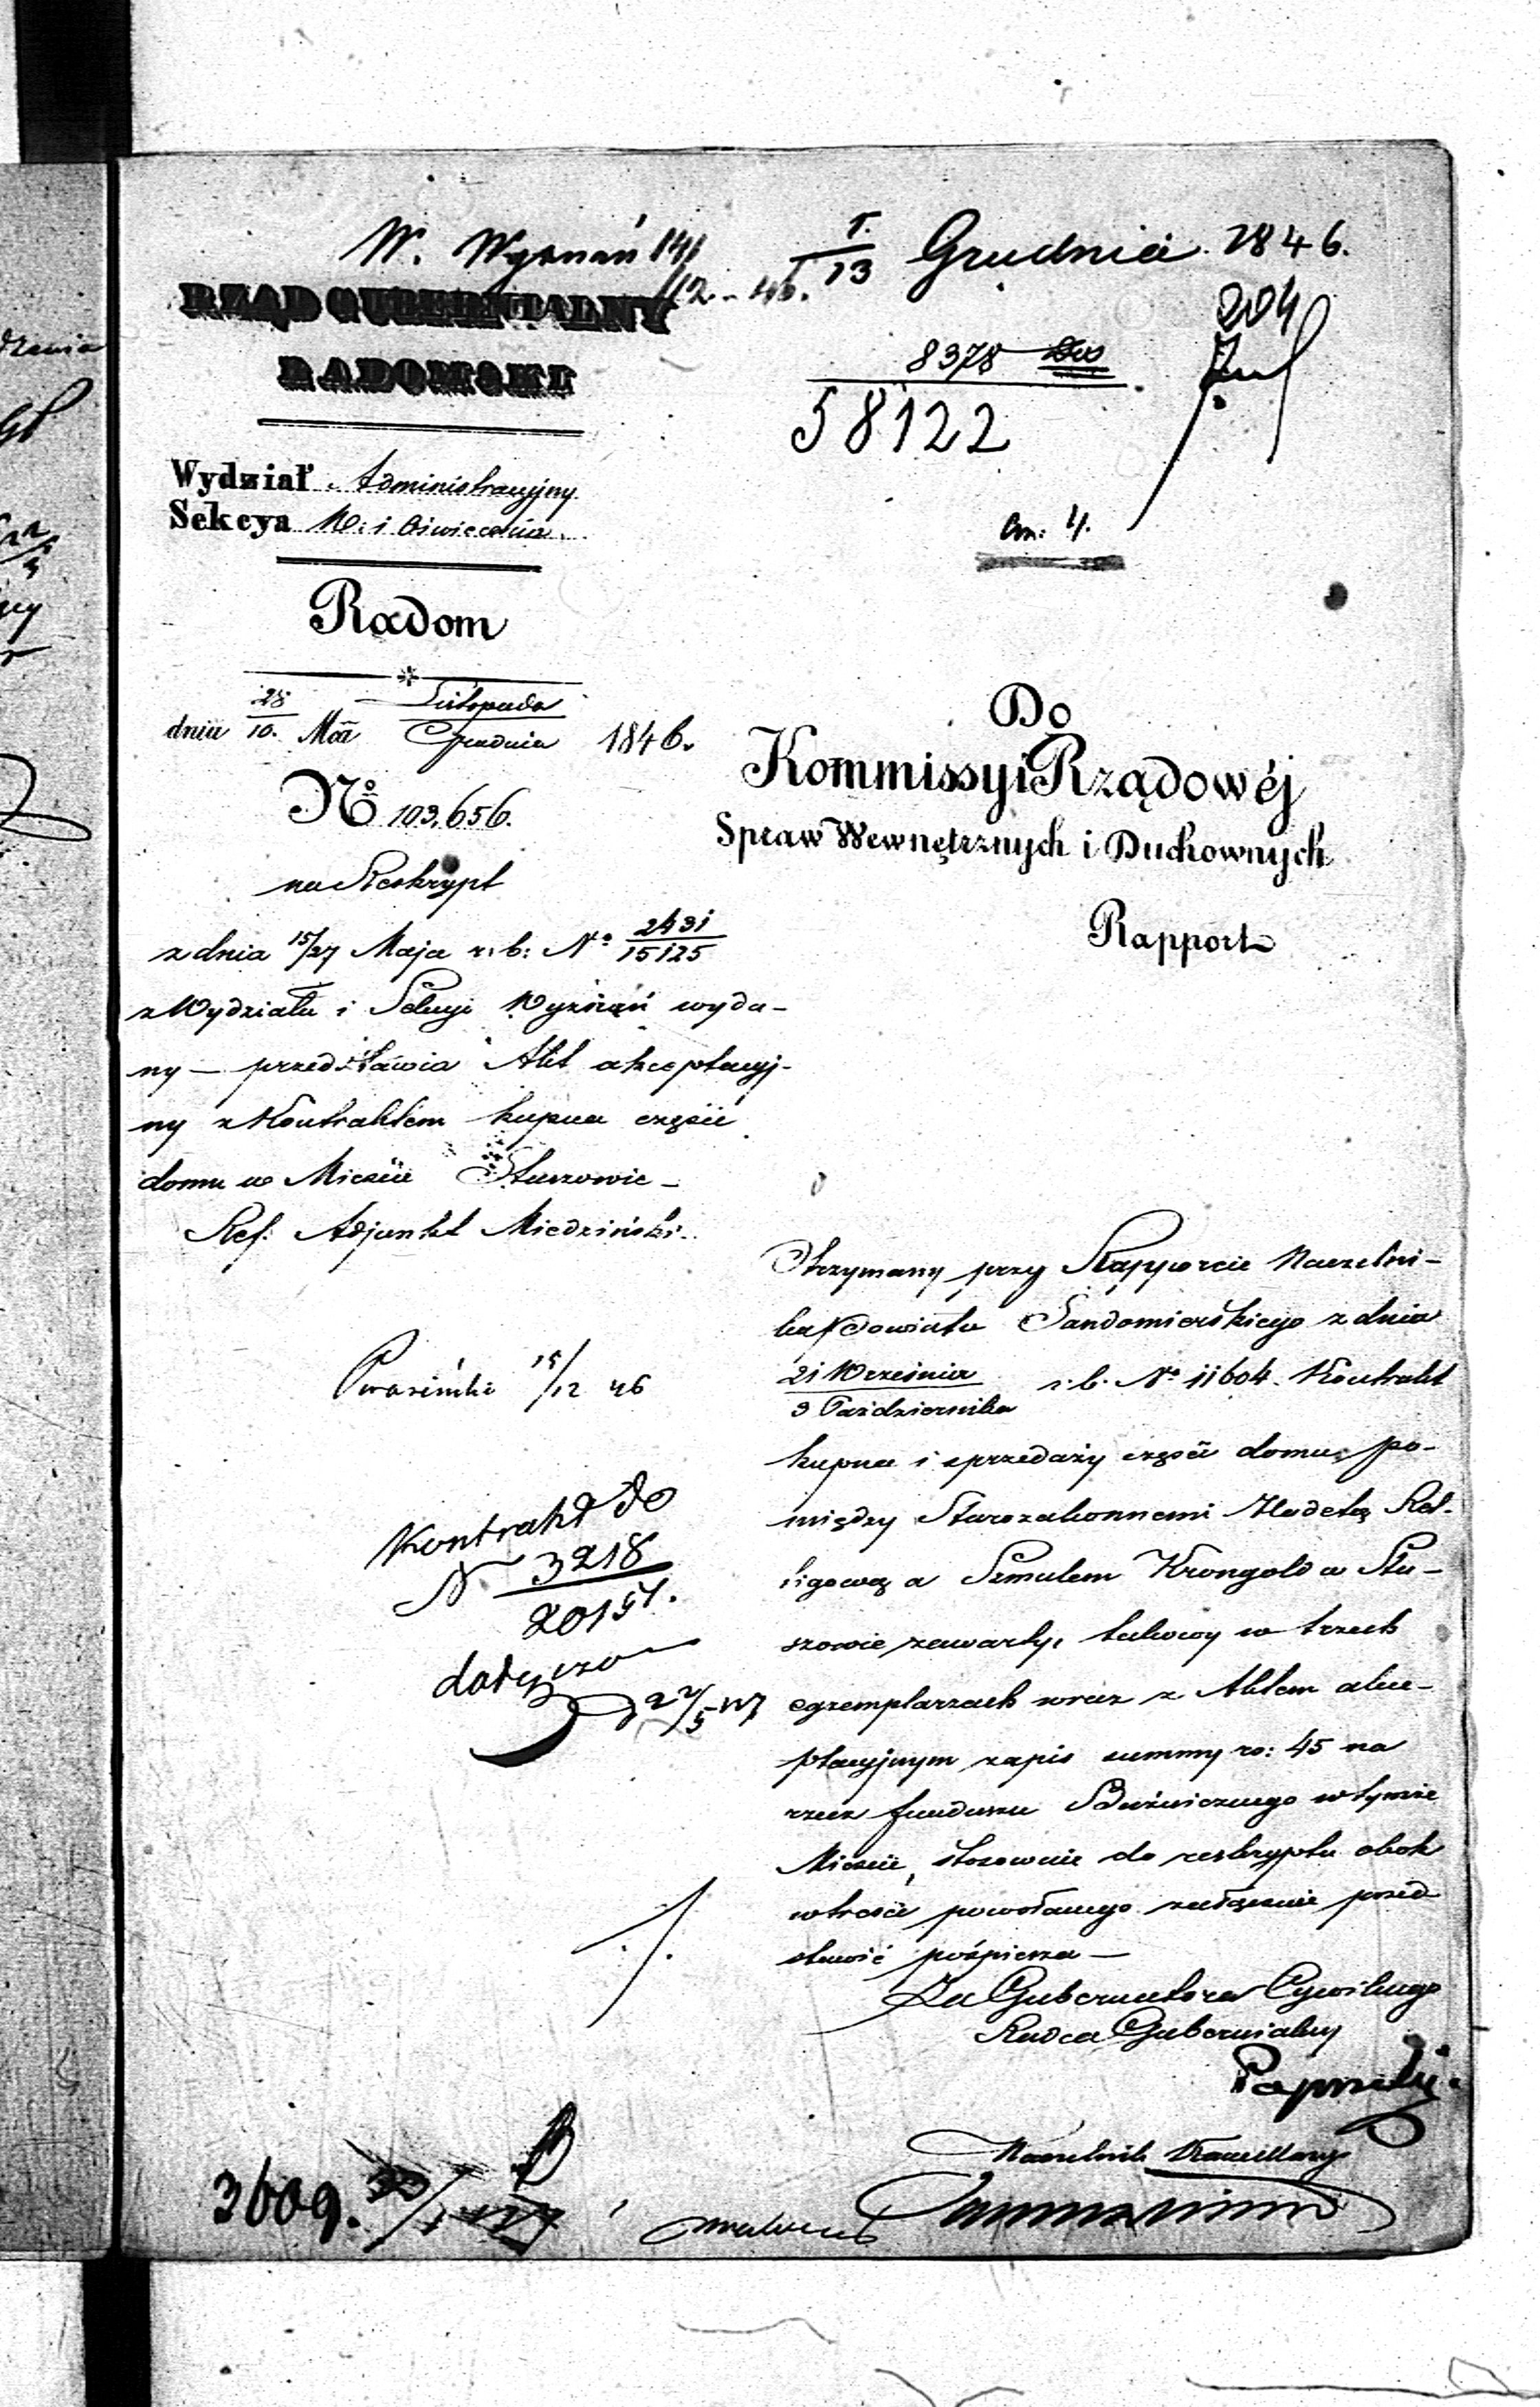 W. Wyznań 14/12 - 46.
1/13 Grudnia 1846.
204
8378
58122
RZĄD GUBERNIALNY
RADOMSKI
Wydział Administracyjny
Sekcya W: i Oświecenia.
4.
Radom
dnia 28/10. Mca Listopada/Grudnia 1846.
No 103,656.
na Reskrypt
z dnia 15/27 Maja r: b: No 2431/15125
z Wydziału i Sekcyi Wyznań wyda-
ny — przedstawia Akt akceptacyj-
ny z Kontraktem kupna części
domu w Mieście Staszowie —
Ref: Adjunkt Miedziński.
Do
Kommissyi Rządowéj
Spraw Wewnętrznych i Duchownych
Rapport
Otrzymany przy Rapporcie Naczelni-
ka Powiatu Sandomierskiego z dnia
21 Września/3 Października r: b: No 11604. Kontrakt
kupna i sprzedaży części domu, po-
między Starozakonnemi Hadetą Rel-
ligową a Szmulem Krongold w Sta-
szowie zawarty, takowy w trzech
egzemplarzach wraz z Aktem akce-
ptacyjnym zapis summy rs: 45 na
rzecz funduszu Bóżnicznego w tymże
Mieście, stosownie do reskryptu obok
w treści powołanego załączenie przed
stawić pośpiesza —
Za Gubernatora Cywilnego
Radca Gubernialny
Paprocki.
Naczelnik Kancellaryi
15/12 46
Kontrakt do
N 3218/20151.
dołączono
22/5 47
3609.